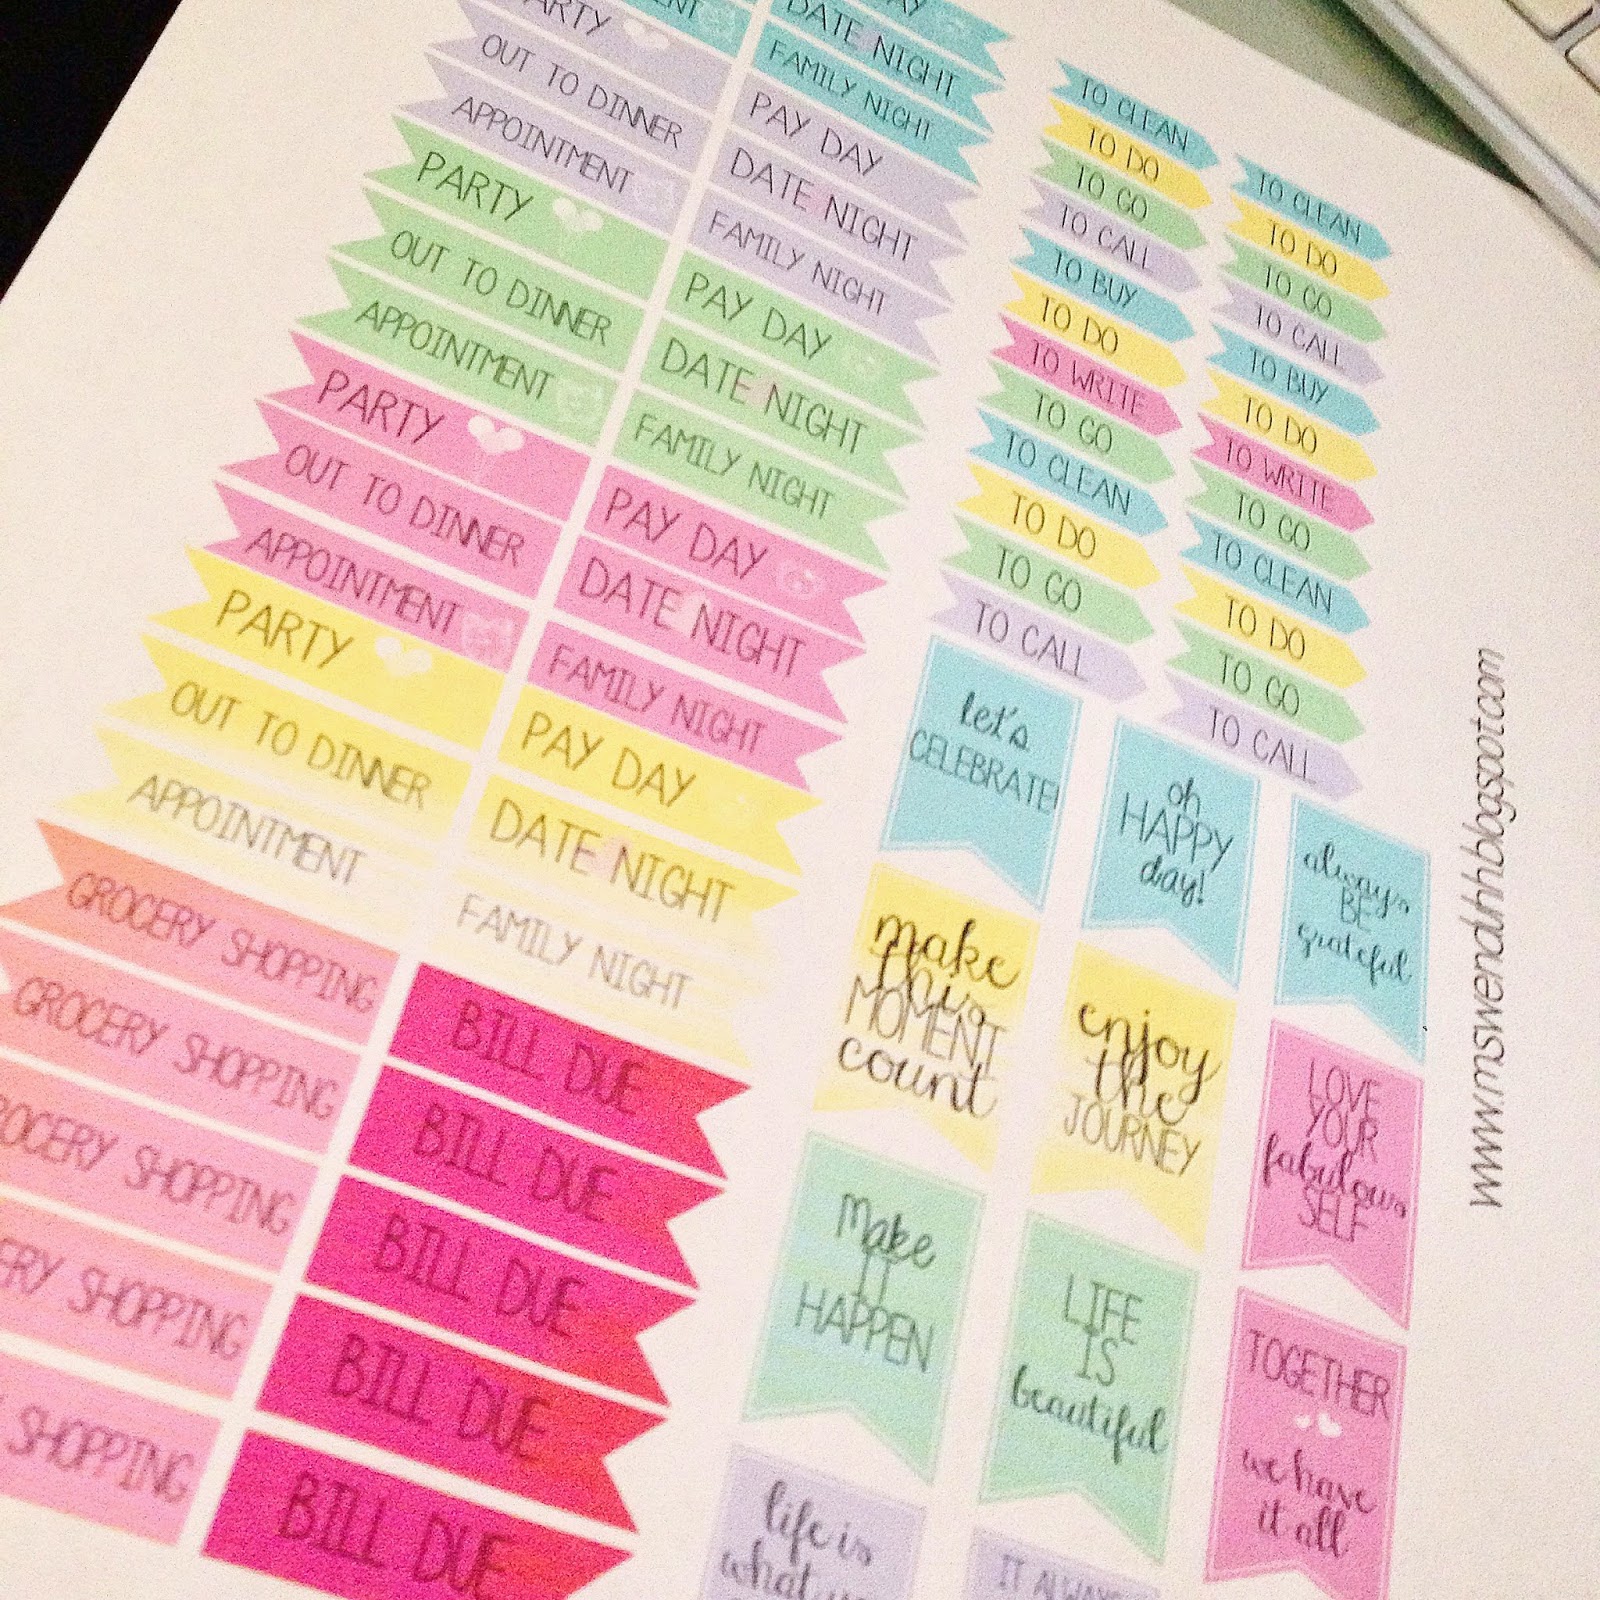 PARTY
OUT TO DINNER
APPOINTMENT
PARTY
OUT TO DINNER
APPOINTMENT
PARTY
OUT TO DINNER
APPOINTMENT
PARTY
OUT TO DINNER
APPOINTMENT
DATE NIGHT
FAMILY NIGHT
PAY DAY
DATE NIGHT
FAMILY NIGHT
PAY DAY
DATE NIGHT
FAMILY NIGHT
PAY DAY
DATE NIGHT
FAMILY NIGHT
PAY DAY
DATE NIGHT
FAMILY NIGHT
GROCERY SHOPPING
GROCERY SHOPPING
GROCERY SHOPPING
SHOPPING
SHOPPING
BILL DUE
BILL DUE
BILL DUE
BILL DUE
BILL DUE
TO CLEAN
TO DO
TO GO
TO CALL
TO BUY
TO DO
TO WRITE
TO GO
TO CLEAN
TO DO
TO GO
TO CALL
TO CLEAN
TO DO
TO GO
TO CALL
TO BUY
TO DO
TO WRITE
TO GO
TO CLEAN
TO DO
TO GO
TO CALL
let's
CELEBRATE!
oh
HAPPY
day!
always
BE
grateful
make
this
MOMENT
count
enjoy
the
JOURNEY
LOVE
YOUR
fabulous
SELF
Make
IT
HAPPEN
LIFE
IS
beautiful
TOGETHER
we have
it all
life is
what
IT ALWAYS
www.mswenduhhh.blogspot.com